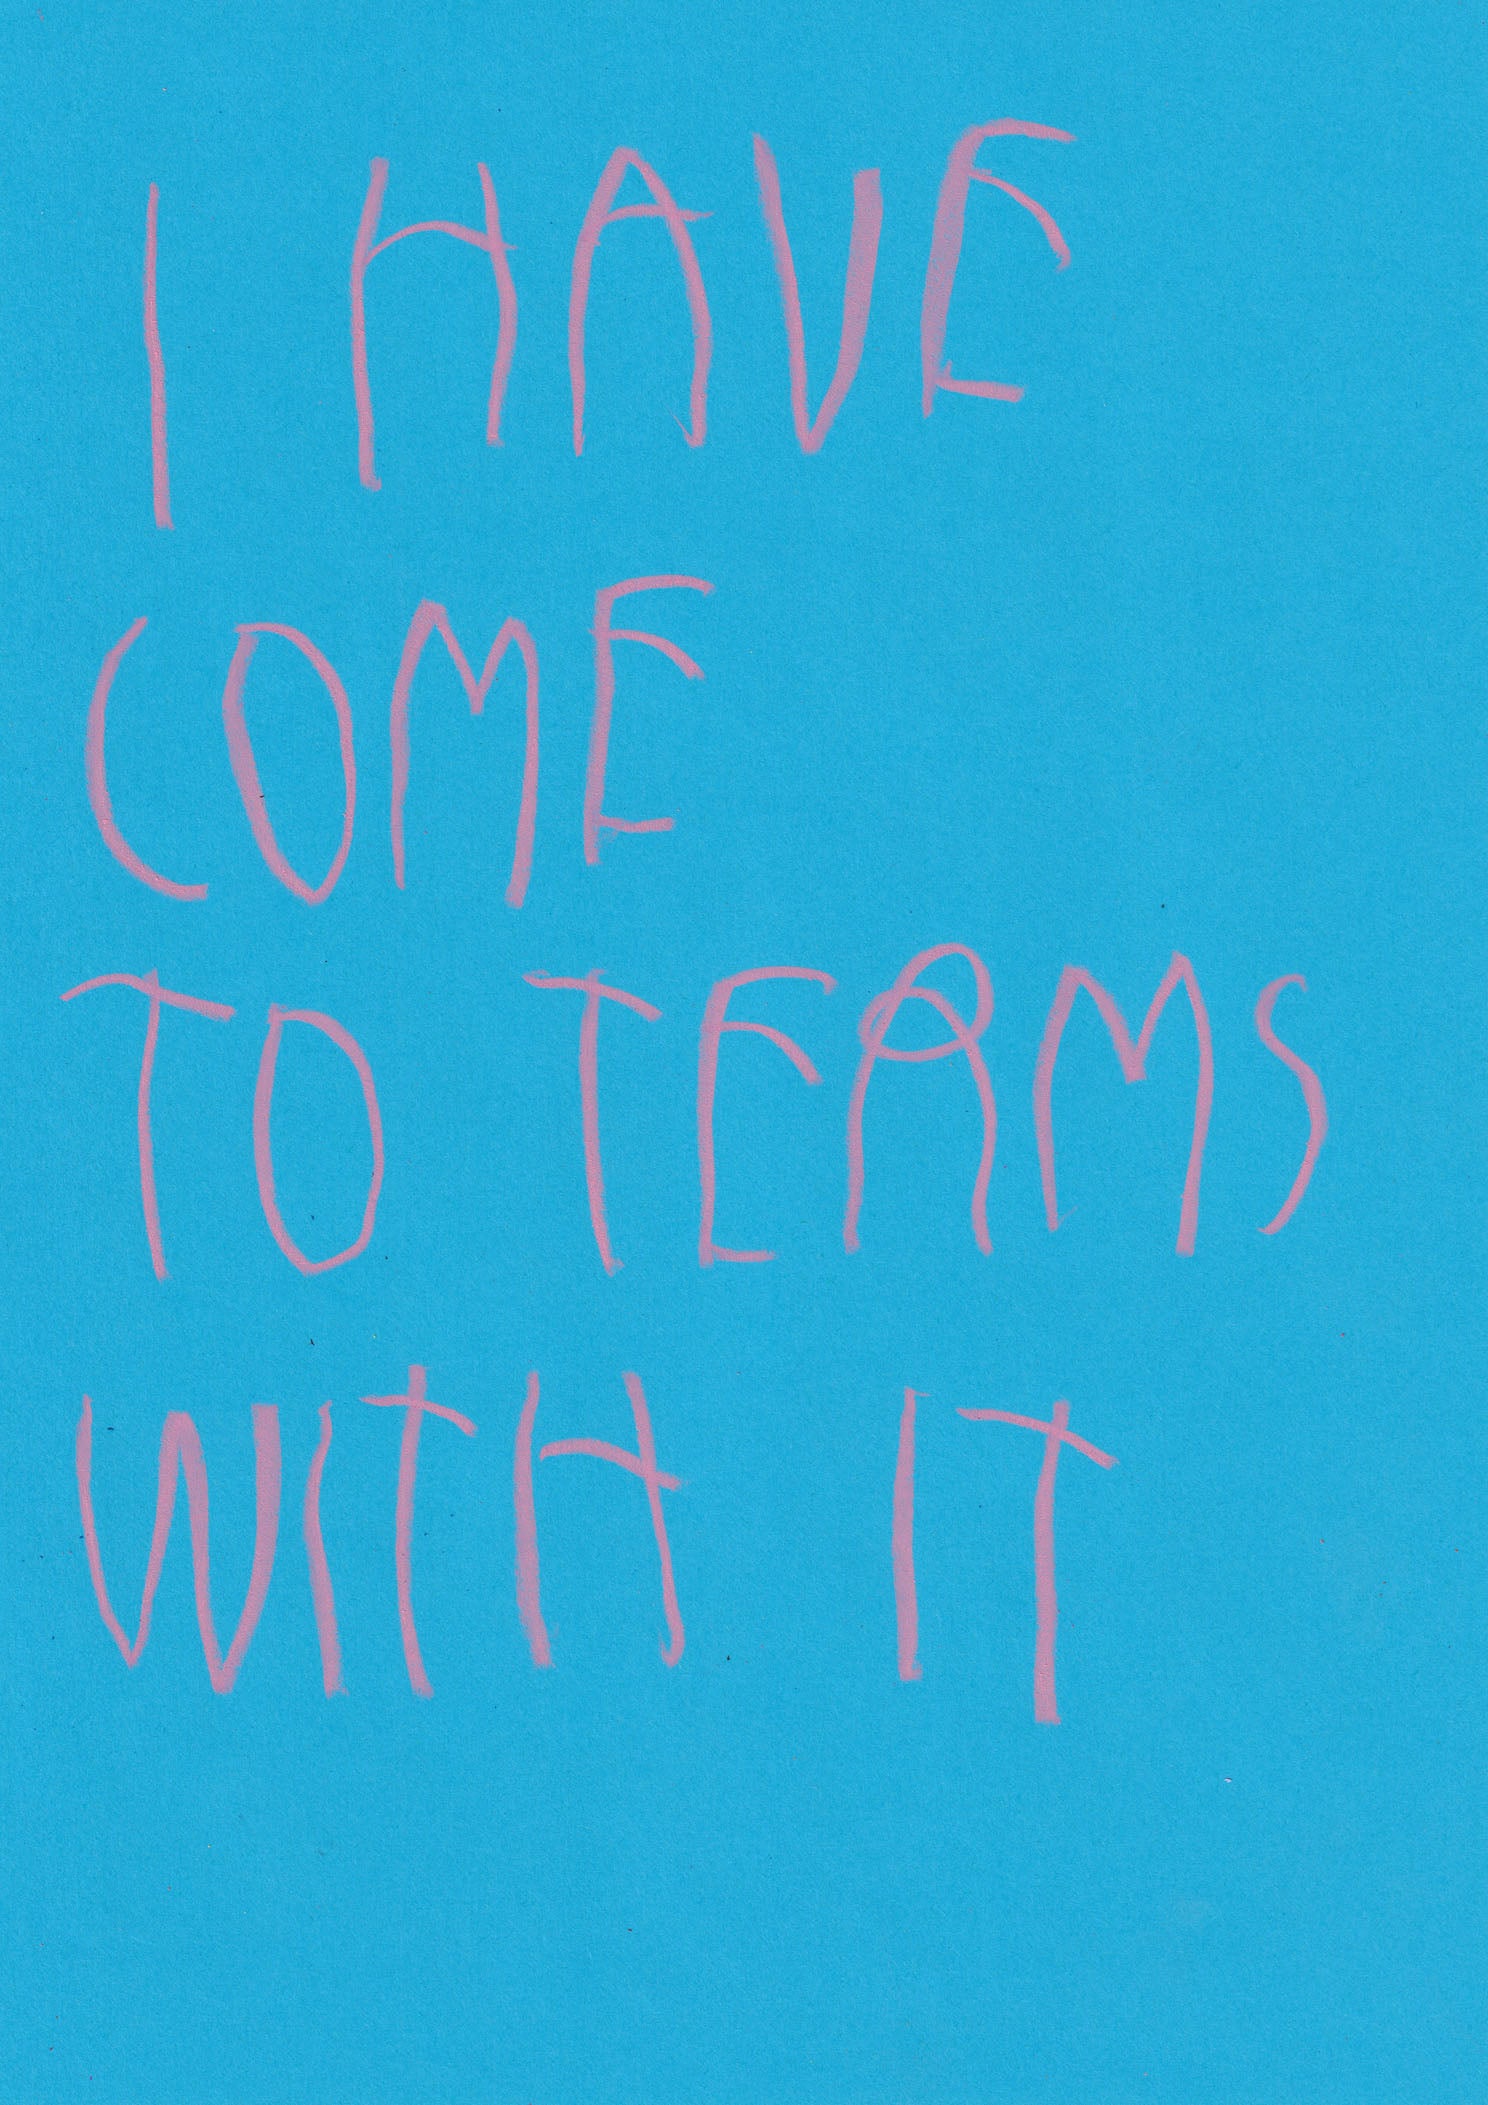 I HAVE
COME
TO TEAMS
WITH IT